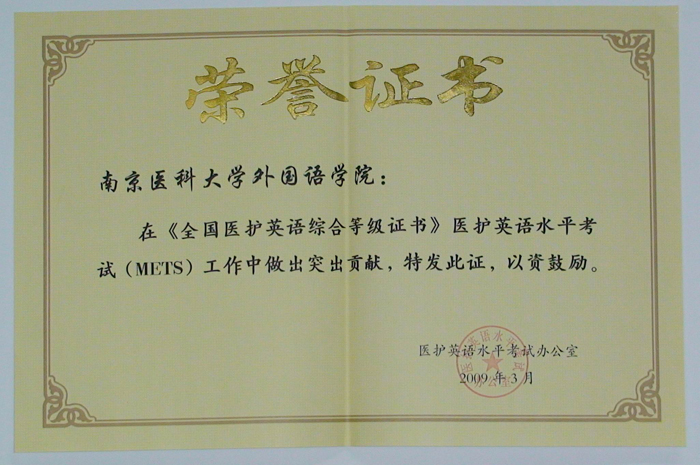 荣誉证书
南京医科大学外国语学院：
在《全国医护英语综合等级证书》医护英语水平考
试（METS）工作中做出突出贡献，特发此证，以资鼓励。
医护英语水平考试办公室
2009 年 3 月